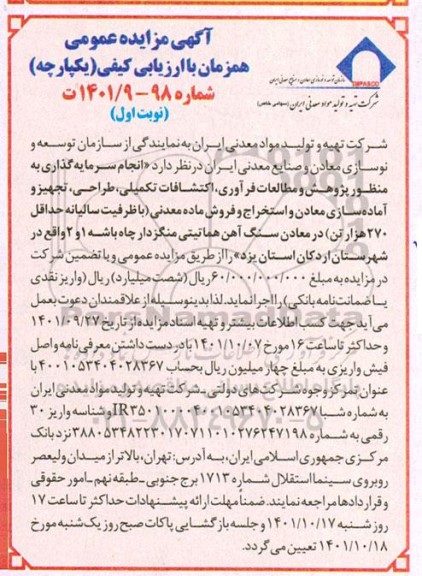 آگهی مزایده عمومی
همزمان با ارزیابی کیفی (یکپارچه)
شماره ۹۸-۱۴۰۱/۹ ت
(نوبت اول)
IMPASCO
سازمان توسعه و نوسازی معادن و صنایع معدنی ایران
شرکت تهیه و تولید مواد معدنی ایران (سهامی خاص)
شرکت تهیه و تولید مواد معدنی ایران به نمایندگی از سازمان توسعه و
نوسازی معادن و صنایع معدنی ایران در نظر دارد «انجام سرمایه گذاری به
منظور پژوهش و مطالعات فرآوری، اکتشافات تکمیلی، طراحی، تجهیز و
آماده سازی معادن و استخراج و فروش ماده معدنی (با ظرفیت سالیانه حداقل
۲۷۰ هزار تن) در معادن سنگ آهن هماتیتی منگز دار چاه باشه ۱ و ۲ واقع در
شهرستان اردکان استان یزد» را از طریق مزایده عمومی و با تضمین شرکت
در مزایده به مبلغ ۶۰/۰۰۰/۰۰۰/۰۰۰ ریال (شصت میلیارد) ریال (واریز نقدی
یا ضمانت نامه بانکی) را اجرا نماید. لذا بدینوسیله از علاقمندان دعوت بعمل
می آید جهت کسب اطلاعات بیشتر و تهیه اسناد مزایده از تاریخ ۱۴۰۱/۰۹/۲۷
و حداکثر تا ساعت ۱۶ مورخ ۱۴۰۱/۱۰/۰۷ با در دست داشتن معرفی نامه و اصل
فیش واریزی به مبلغ چهار میلیون ریال بحساب ۴۰۰۱۰۵۳۴۰۴۰۲۸۳۶۷ با
عنوان تمرکز وجوه شرکت های دولتی _ شرکت تهیه و تولید مواد معدنی ایران
به شماره شبا IR۳۵۰۱۰۰۰۰۴۰۰۱۰۵۳۴۰۴۰۲۸۳۶۷ و شناسه واریز ۳۰
رقمی به شماره ۳۸۸۰۵۳۴۸۲۲۳۰۱۷۰۷۱۱۰۱۰۲۷۶۲۴۷۱۹۸ نزد بانک
مرکزی جمهوری اسلامی ایران، به آدرس: تهران، بالاتر از میدان ولیعصر
روبروی سینما استقلال شماره ۱۷۱۳ برج جنوبی - طبقه نهم - امور حقوقی
و قراردادها مراجعه نمایند. ضمناً مهلت ارائه پیشنهادات حداکثر تا ساعت ۱۷
روز شنبه ۱۴۰۱/۱۰/۱۷ و جلسه بازگشایی پاکات صبح روز یک شنبه مورخ
۱۴۰۱/۱۰/۱۸ تعیین می گردد.